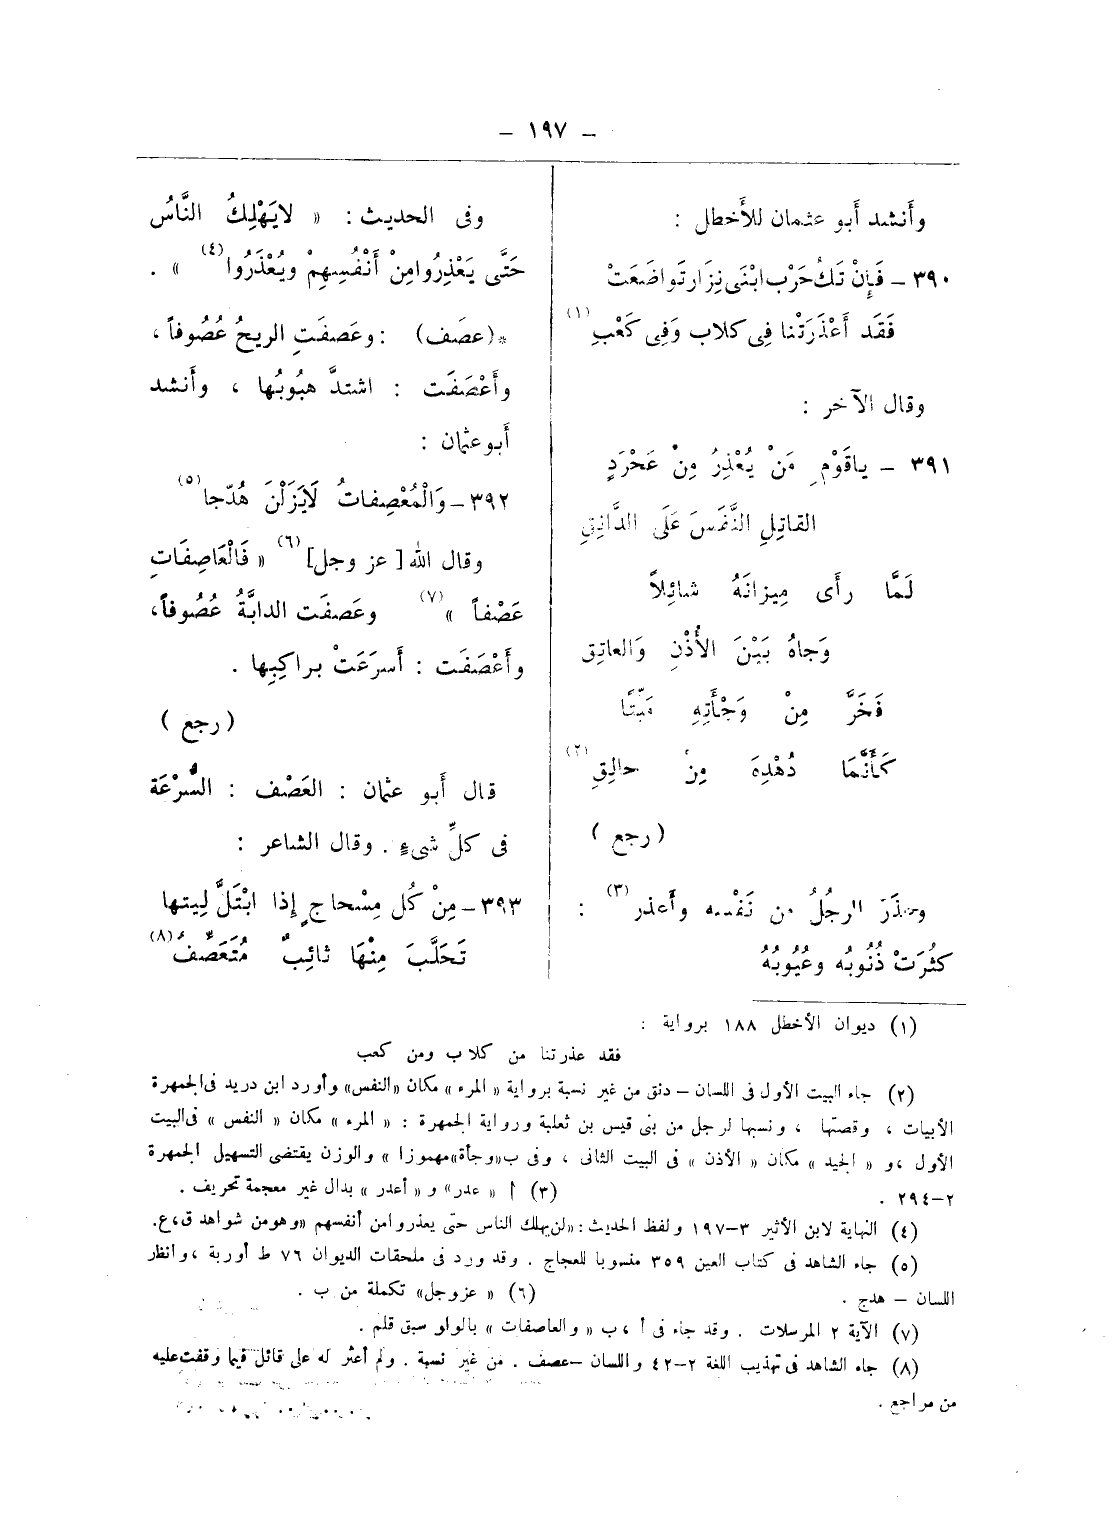 – ١٩٧ –
وأَنشد أَبو عثمان للأَخطل :
٣٩٠ – فَإِنْ تَكُ حَرْب ابْنَى نِزَار تَواضَعَتْ
فَقَد أَعْذَرَتْنا فِى كلاب وَفِى كَعْبِ (١)
وقال الآخر :
٣٩١ – ياقَوْمِ مَنْ يُعْذِرُ مِنْ عَجْرَدٍ
القاتِلِ النَّفَسَ عَلَى الدَّانِقِ
لَمَّا رأَى مِيزانَهُ شائِلاً
وَجاهُ بَيْنَ الأُذْنِ وَالعاتِق
فَخَرَّ مِنْ وَجْأَتِهِ مَيِّتًا
كَأَنَّمَا دُهْدِهَ مِنْ حالِقِ (٢)
( رجع )
وعذَرَ الرجُلُ من نَفْسه وأَعذر (٣) :
كثُرَتْ ذُنُوبُه وعُيُوبُهُ
وفى الحديث : « لايَهْلِكُ النَّاسُ
حَتَّى يَعْذِرُوا مِنْ أَنْفُسِهِمْ ويُعْذَرُوا (٤) » .
*(عصَف) : وعَصفَتِ الريحُ عُصُوفاً ،
وأَعْصَفَت : اشتدَّ هبُوبُها ، وأَنشد
أَبو عثمان :
٣٩٢ – وَالْمُعْصِفاتُ لَايَزَلْنَ هُدَّجا (٥)
وقال الله [ عز وجل ] (٦) « فَالْعَاصِفَاتِ
عَصْفاً » (٧) وعَصفَت الدابَّةُ عُصُوفاً،
وأَعْصَفَت : أَسرَعَتْ براكِبِها .
( رجع )
قال أَبو عثمان : العَصْف : السُّرْعَة
فى كلِّ شىءٍ . وقال الشاعر :
٣٩٣ – مِنْ كُل مِسْحاجٍ إِذا ابْتَلَّ لِيتها
تَحَلَّبَ مِنْهَا ثائِبٌ مُتَعَصِّفُ (٨)
(١) ديوان الأخطل ١٨٨ برواية :
فقد عذرتنا من كلاب ومن كعب
(٢) جاء البيت الأول فى اللسان – دنق من غير نسبة برواية « المرء » مكان «النفس» وأورد ابن دريد فى الجمهرة
الأبيات ، وقصتها ، ونسبها لرجل من بنى قيس بن ثعلبة ورواية الجمهرة : « المرء » مكان « النفس » فى البيت
الأول ، و « الجيد » مكان « الأذن » فى البيت الثانى ، وفى ب «وجأة» مهموزا » والوزن يقتضى التسهيل الجمهرة
٢–٢٩٤ . (٣) أ « عدر» و « أعدر » بدال غير معجمة تحريف .
(٤) النهاية لابن الأثير ٣–١٩٧ ولفظ الحديث : «لن يهلك الناس حتى يعذروا من أنفسهم » وهو من شواهد ق ، ع.
(٥) جاء الشاهد فى كتاب العين ٣٥٩ منسوبا للعجاج . وقد ورد فى ملحقات الديوان ٧٦ ط أوربة ، وانظر
اللسان – هدج . (٦) « عز وجل» تكملة من ب .
(٧) الآية ٢ المرسلات . وقد جاء فى أ ، ب « والعاصفات » بالواو سبق قلم .
(٨) جاء الشاهد فى تهذيب اللغة ٢–٤٢ واللسان – عصف . من غير نسبة . ولم أعثر له على قائل فيما وقفت عليه
من مراجع .